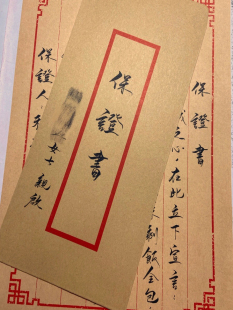 保證書
保證書
之心，在此立下宣言：
剩飯全包，
保證人
女士 親啟